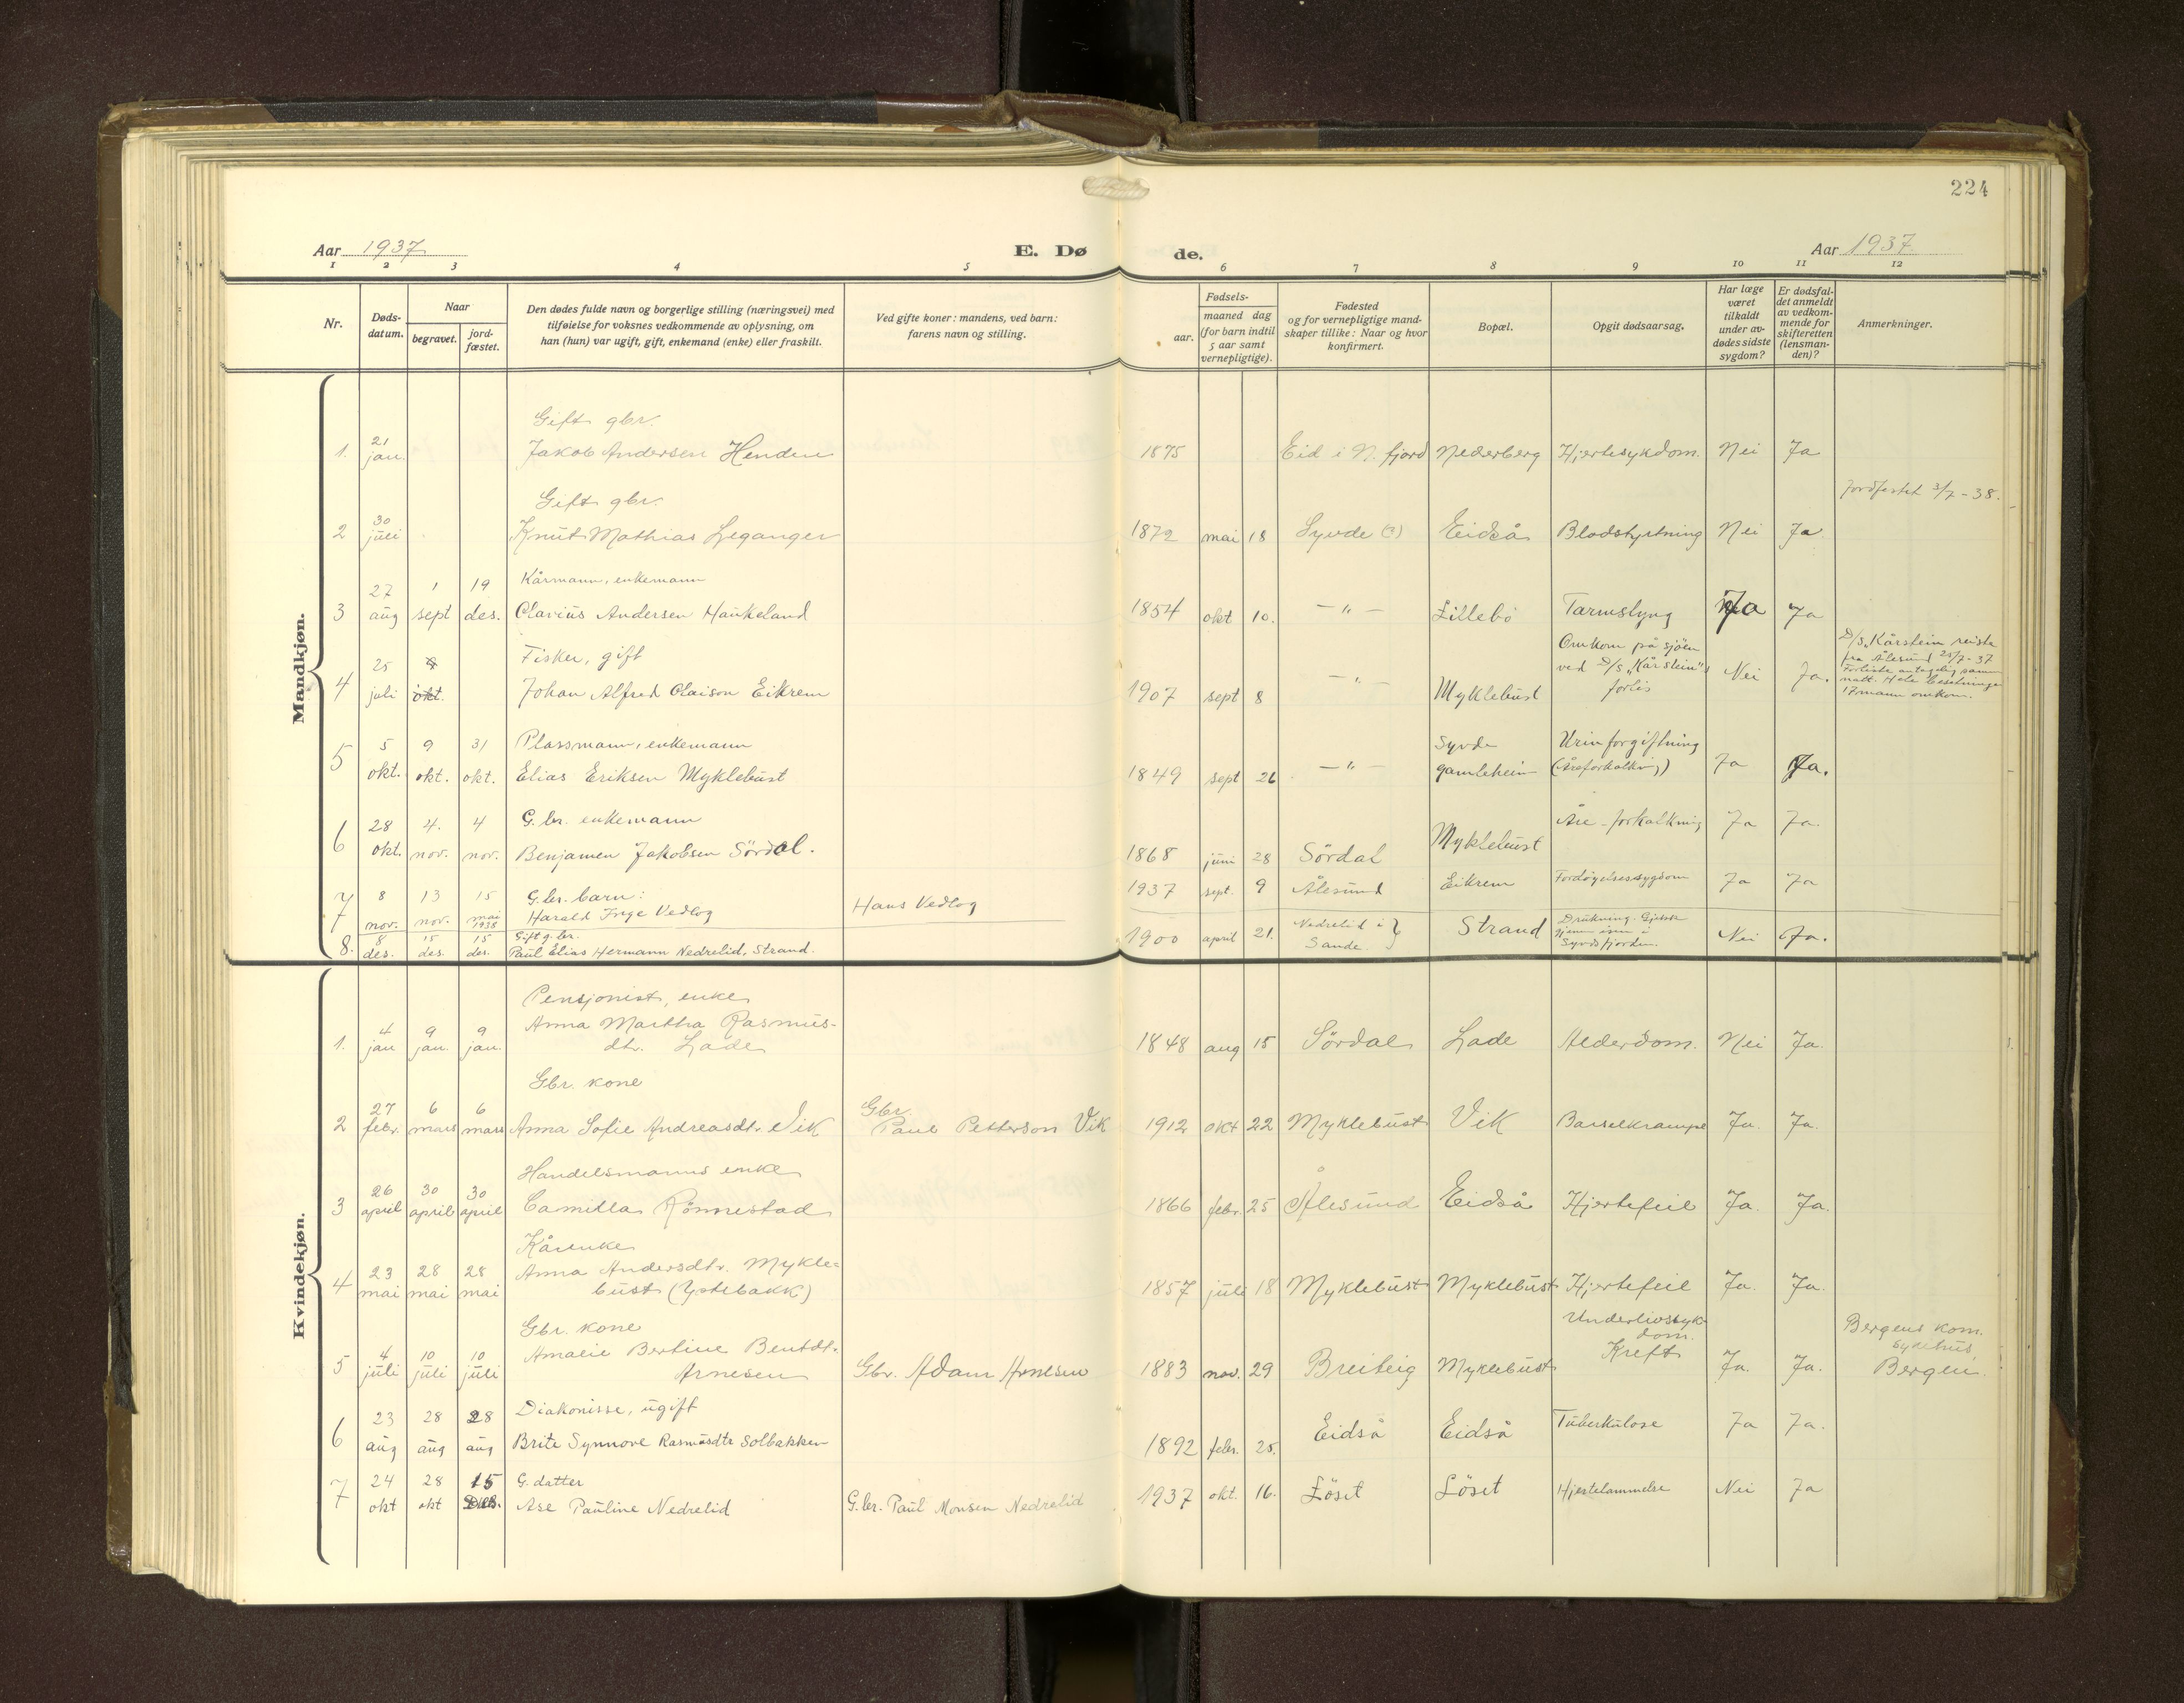 224
Aar 1937 E. Dø de. Aar 1937
1 2 3 4 5 6 7 8 9 10 11 12
Nr. Døds-datum. Naar begravet. jord-fæstet. Den dødes fulde navn og borgerlige stilling (næringsvei) med tilføielse for voksnes vedkommende av oplysning, om han (hun) var ugift, gift, enkemand (enke) eller fraskilt. Ved gifte koner: mandens, ved barn: farens navn og stilling. Fødsels- aar. maaned dag (for barn indtil 5 aar samt vernepligtige). Fødested og for vernepligtige mand-skaper tillike: Naar og hvor konfirmert. Bopæl. Opgit dødsaarsag. Har læge været tilkaldt under av-dødes sidste sygdom? Er dødsfal-det anmeldt av vedkom-mende for skifteretten (lensman-den)? Anmerkninger.
Mandkjøn.
Gift gbr.
1. 21 jan. Jakob Andersen Henden 1875 Eid i N. fjord Nederberg Hjertesykdom. Nei Ja
Gift gbr. Jordfestet 3/7 - 38.
2 30 juli Knut Mathias Leganger 1872 mai 18 Syvde (?) Eidså Blodstyrtning Nei Ja
Kårmann, enkemann
3 27 aug 1 sept 19 des. Olavius Andersen Haukeland 1854 okt 10. - " - Lillebö Tarmslyng Ja Ja
Fisker, gift
4 25 juli okt. Johan Alfred Olaison Eikrem 1907 sept 8 - " - Myklebust Omkom på sjöen ved D/s "Kårstein"s forlis Nei Ja. D/s "Kårstein reiste fra Ålesund 25/7 - 37 Forliste antagelig samme natt. Hele besetningen 17 mann omkom.
Plassmann, enkemann
5 5 okt. 9 okt. 31 okt. Elias Eriksen Myklebust 1849 sept 26 - " - Syvde gamleheim Urinforgiftning (Åreforkalkning) Ja Ja.
G.br. enkemann
6 28 okt. 4. nov. 4 nov. Benjamen Jakobsen Sördal. 1868 juni 28 Sördal Myklebust Åre-forkalkning Ja Ja.
G.br. barn:
7 8 nov. 13 nov. 15 mai 1938 Harald Inge Vedlog Hans Vedlog 1937 sept. 9 Ålesund Eikrem Fordöyelsessygdom Ja Ja
Gift g.br.
8. 8 des. 15 des. 15 des. Paul Elias Hermann Nedrelid, Strand. 1900 april 21. Nedrelid i Sande. Strand Drukning. gjennem isen i Syvdsfjorden. Nei Ja.
Kvindekjøn.
Pensjonist, enke
1. 4 jan 9 jan. 9 jan. Anna Martha Rasmus-dtr. Lade 1848 aug 15 Sördal Lade Alderdom. Nei Ja.
Gbr. kone
2 27 febr. 6 mars 6 mars Anna Sofie Andreasdtr. Vik Gbr. Paul Petterson Vik 1912 okt 22 Myklebust Vik Barselkrampe Ja. Ja.
Handelsmanns enke
3 26 april 30 april 30 april Camilla Rönnestad 1866 febr. 25 Ålesund Eidså Hjertefeil Ja. Ja.
Kårenke
4 23 mai 28 mai 28 mai Anna Andersdtr. Mykle-bust (Ystebakk) 1857 juli 18 Myklebust Myklebust Hjertefeil Ja. Ja.
Gbr. kone
5 4 juli 10 juli 10 juli Amalie Bertine Bentdtr. Arnesen Gbr. Adam Arnesen 1883 nov. 29 Breiteig Myklebust Underlivssyk-dom. Kreft Ja. Ja. Bergens kom. sykehus, Bergen.
Diakonisse, ugift
6 23 aug 28 aug 28 aug Brite Synnove Rasmusdtr Solbakken 1892 febr. 25. Eidså Eidså Tuberkulose Ja Ja.
G. datter
7 24 okt 28 okt 15 Des. Ase Pauline Nedrelid G.br. Paul Monsen Nedrelid 1937 okt. 16. Löset Löset Hjertelammelse Nei Ja